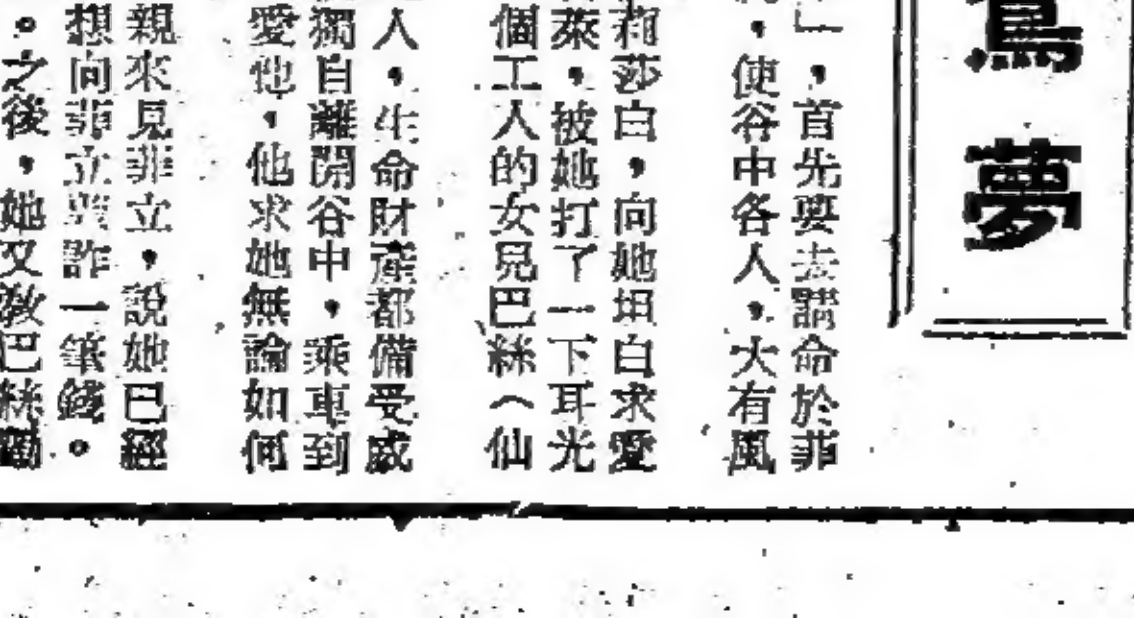 鴦夢
」，首先要去請命於菲
，使谷中各人，大有風
莉莎白，向她坦白求愛
萊，被她打了一下耳光
個工人的女兒巴絲（仙
人，生命財產都備受威
獨自離開谷中，乘車到
愛他，他求她無論如何
親來見菲立，說她已經
想向菲立詐一筆錢。
。之後，她又教巴絲